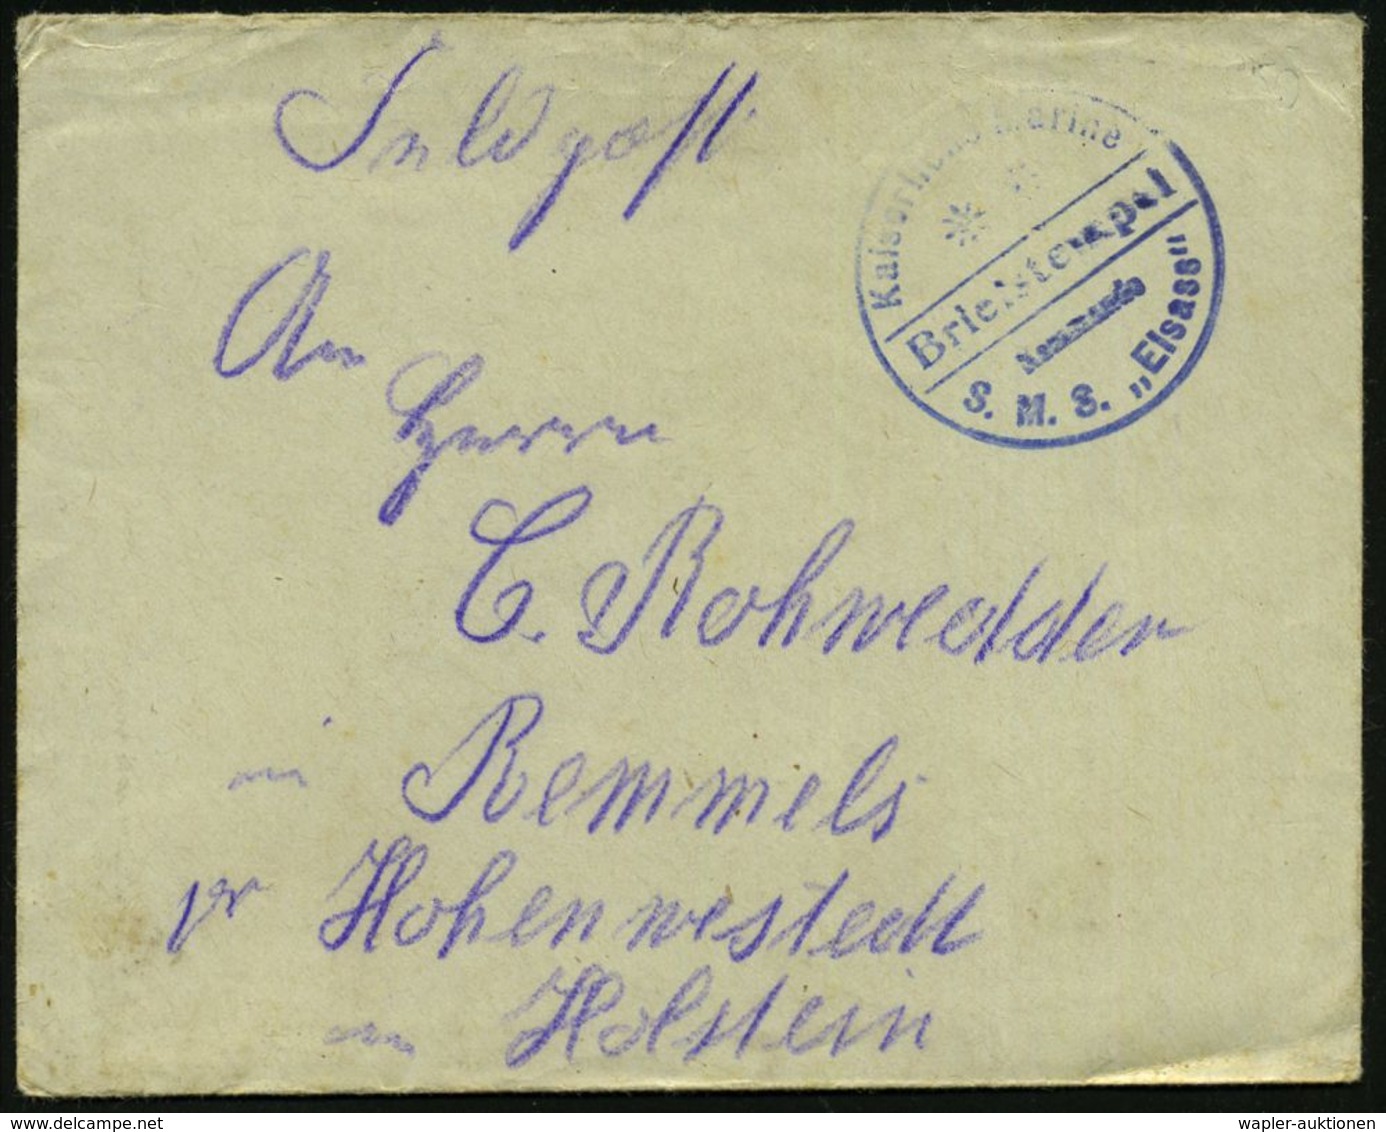 Feldpost.
Kaiserliche Marine
Briefstempel
Kommando
S. M. S. „Elsass"
An
Herrn
C. Rohwedder
in Remmels
pr Hohenwestedt
in Holstein
wapler-auktionen